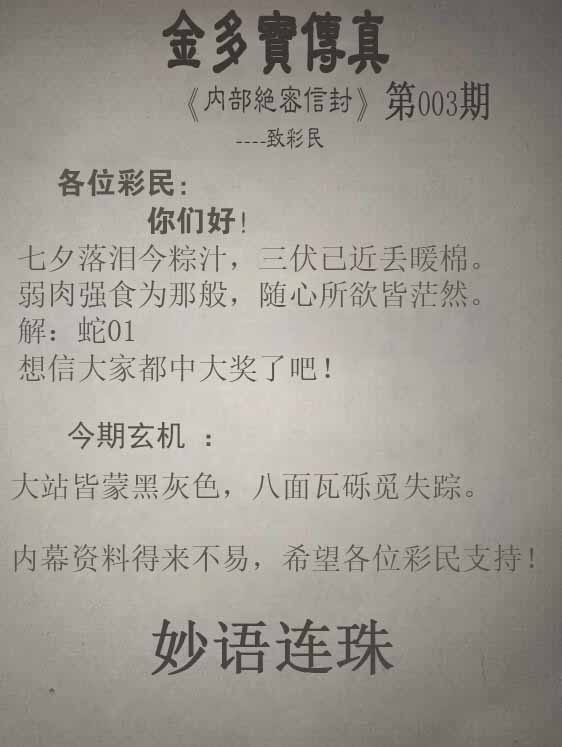 金多寳傳真
《内部絶密信封》第003期
----致彩民
各位彩民：
你们好！
七夕落泪今粽汁，三伏已近丢暖棉。
弱肉强食为那般，随心所欲皆茫然。
解：蛇01
想信大家都中大奖了吧！
今期玄机 ：
大站皆蒙黑灰色，八面瓦砾觅失踪。
内幕资料得来不易，希望各位彩民支持！
妙语连珠